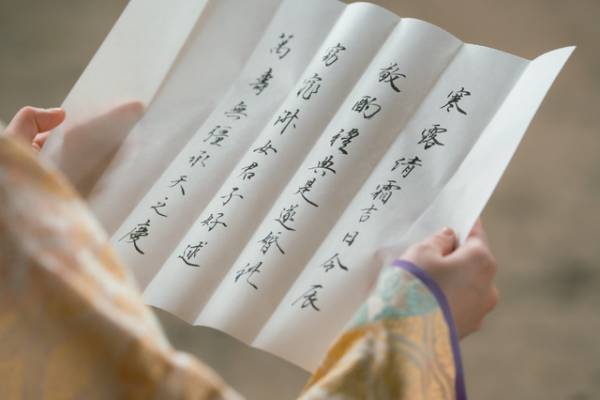 寒露倩霜吉日令辰
敬酌禮典是遂婚礼
窈窕淑女君子好逑
萬壽無疆承天之慶